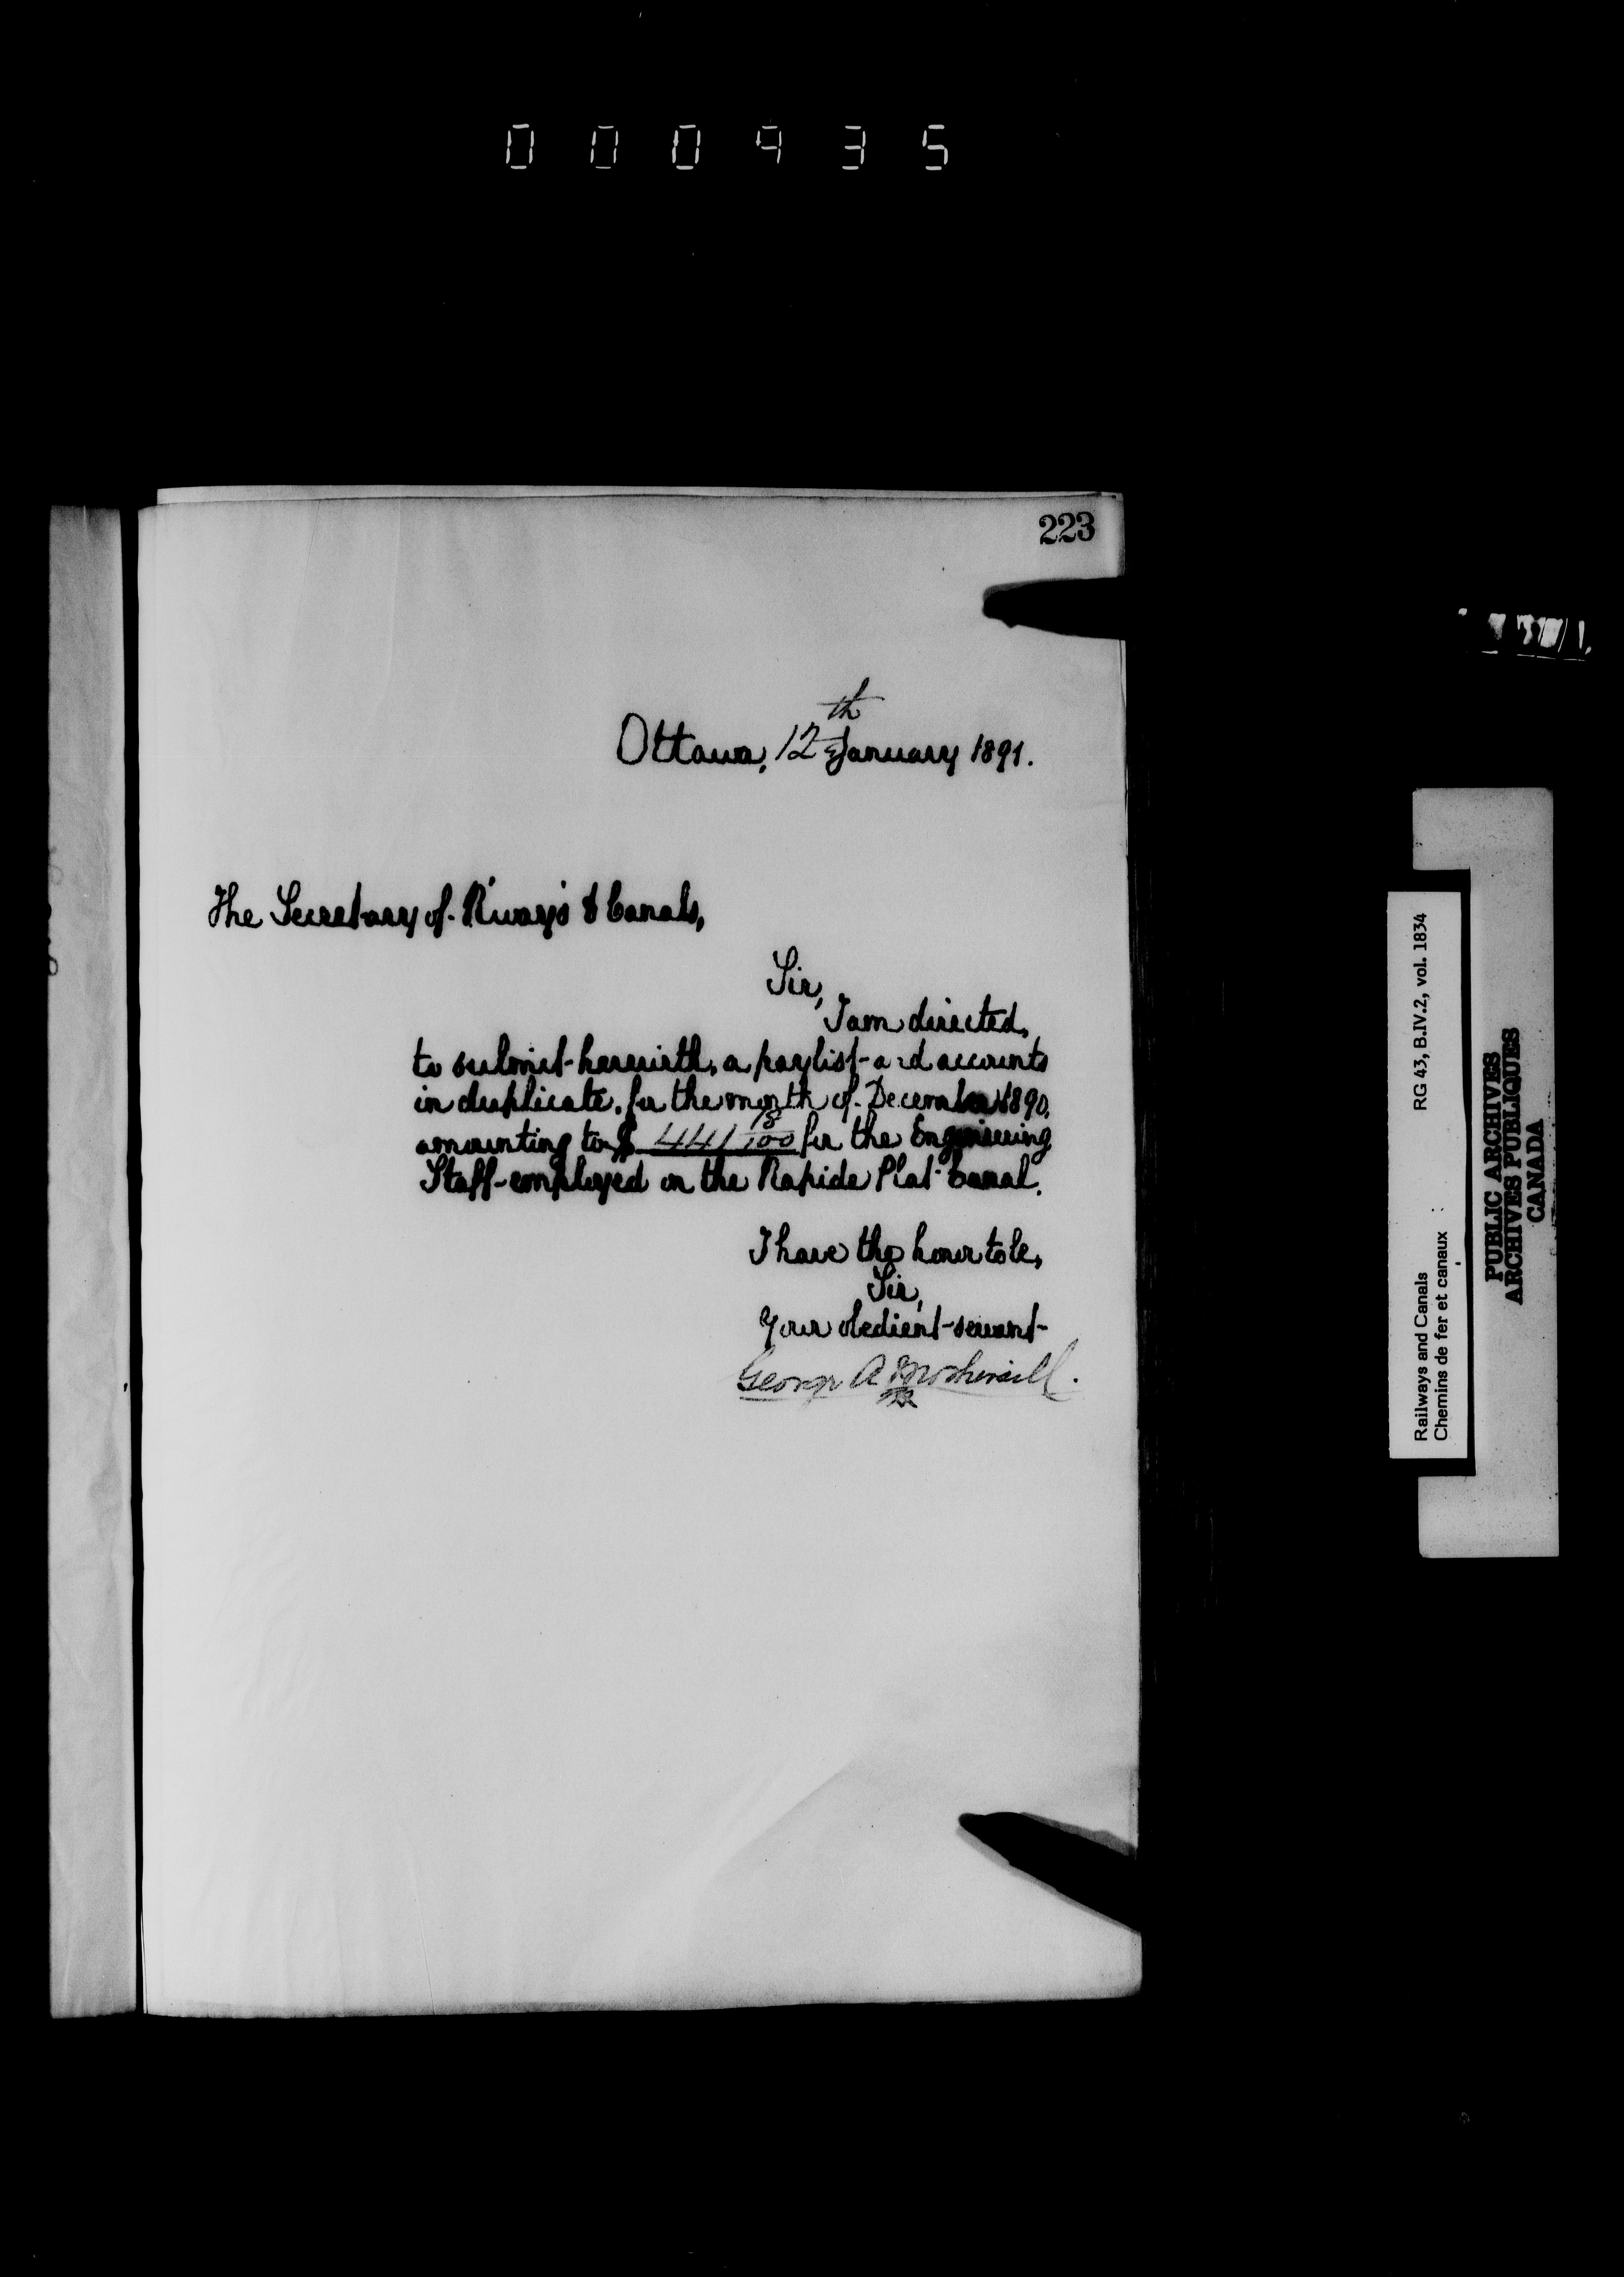 000435
223
Ottawa, 12th January 1891.
The Secretary of R'ways & Canals,
Sir,
I am directed,
to submit herewith, a paylist and accounts
in duplicate, for the month of December 1890,
amounting to $ 441 18/100 for the Engineering
Staff employed on the Rapide Plat Canal.
I have the honor to be,
Sir,
Your obedient servant
George A Mothersill.
Railways and Canals RG 43, B.IV.2, vol. 1834
Chemins de fer et canaux
PUBLIC ARCHIVES
ARCHIVES PUBLIQUES
CANADA